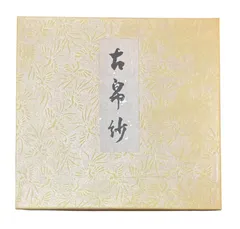 古帛紗